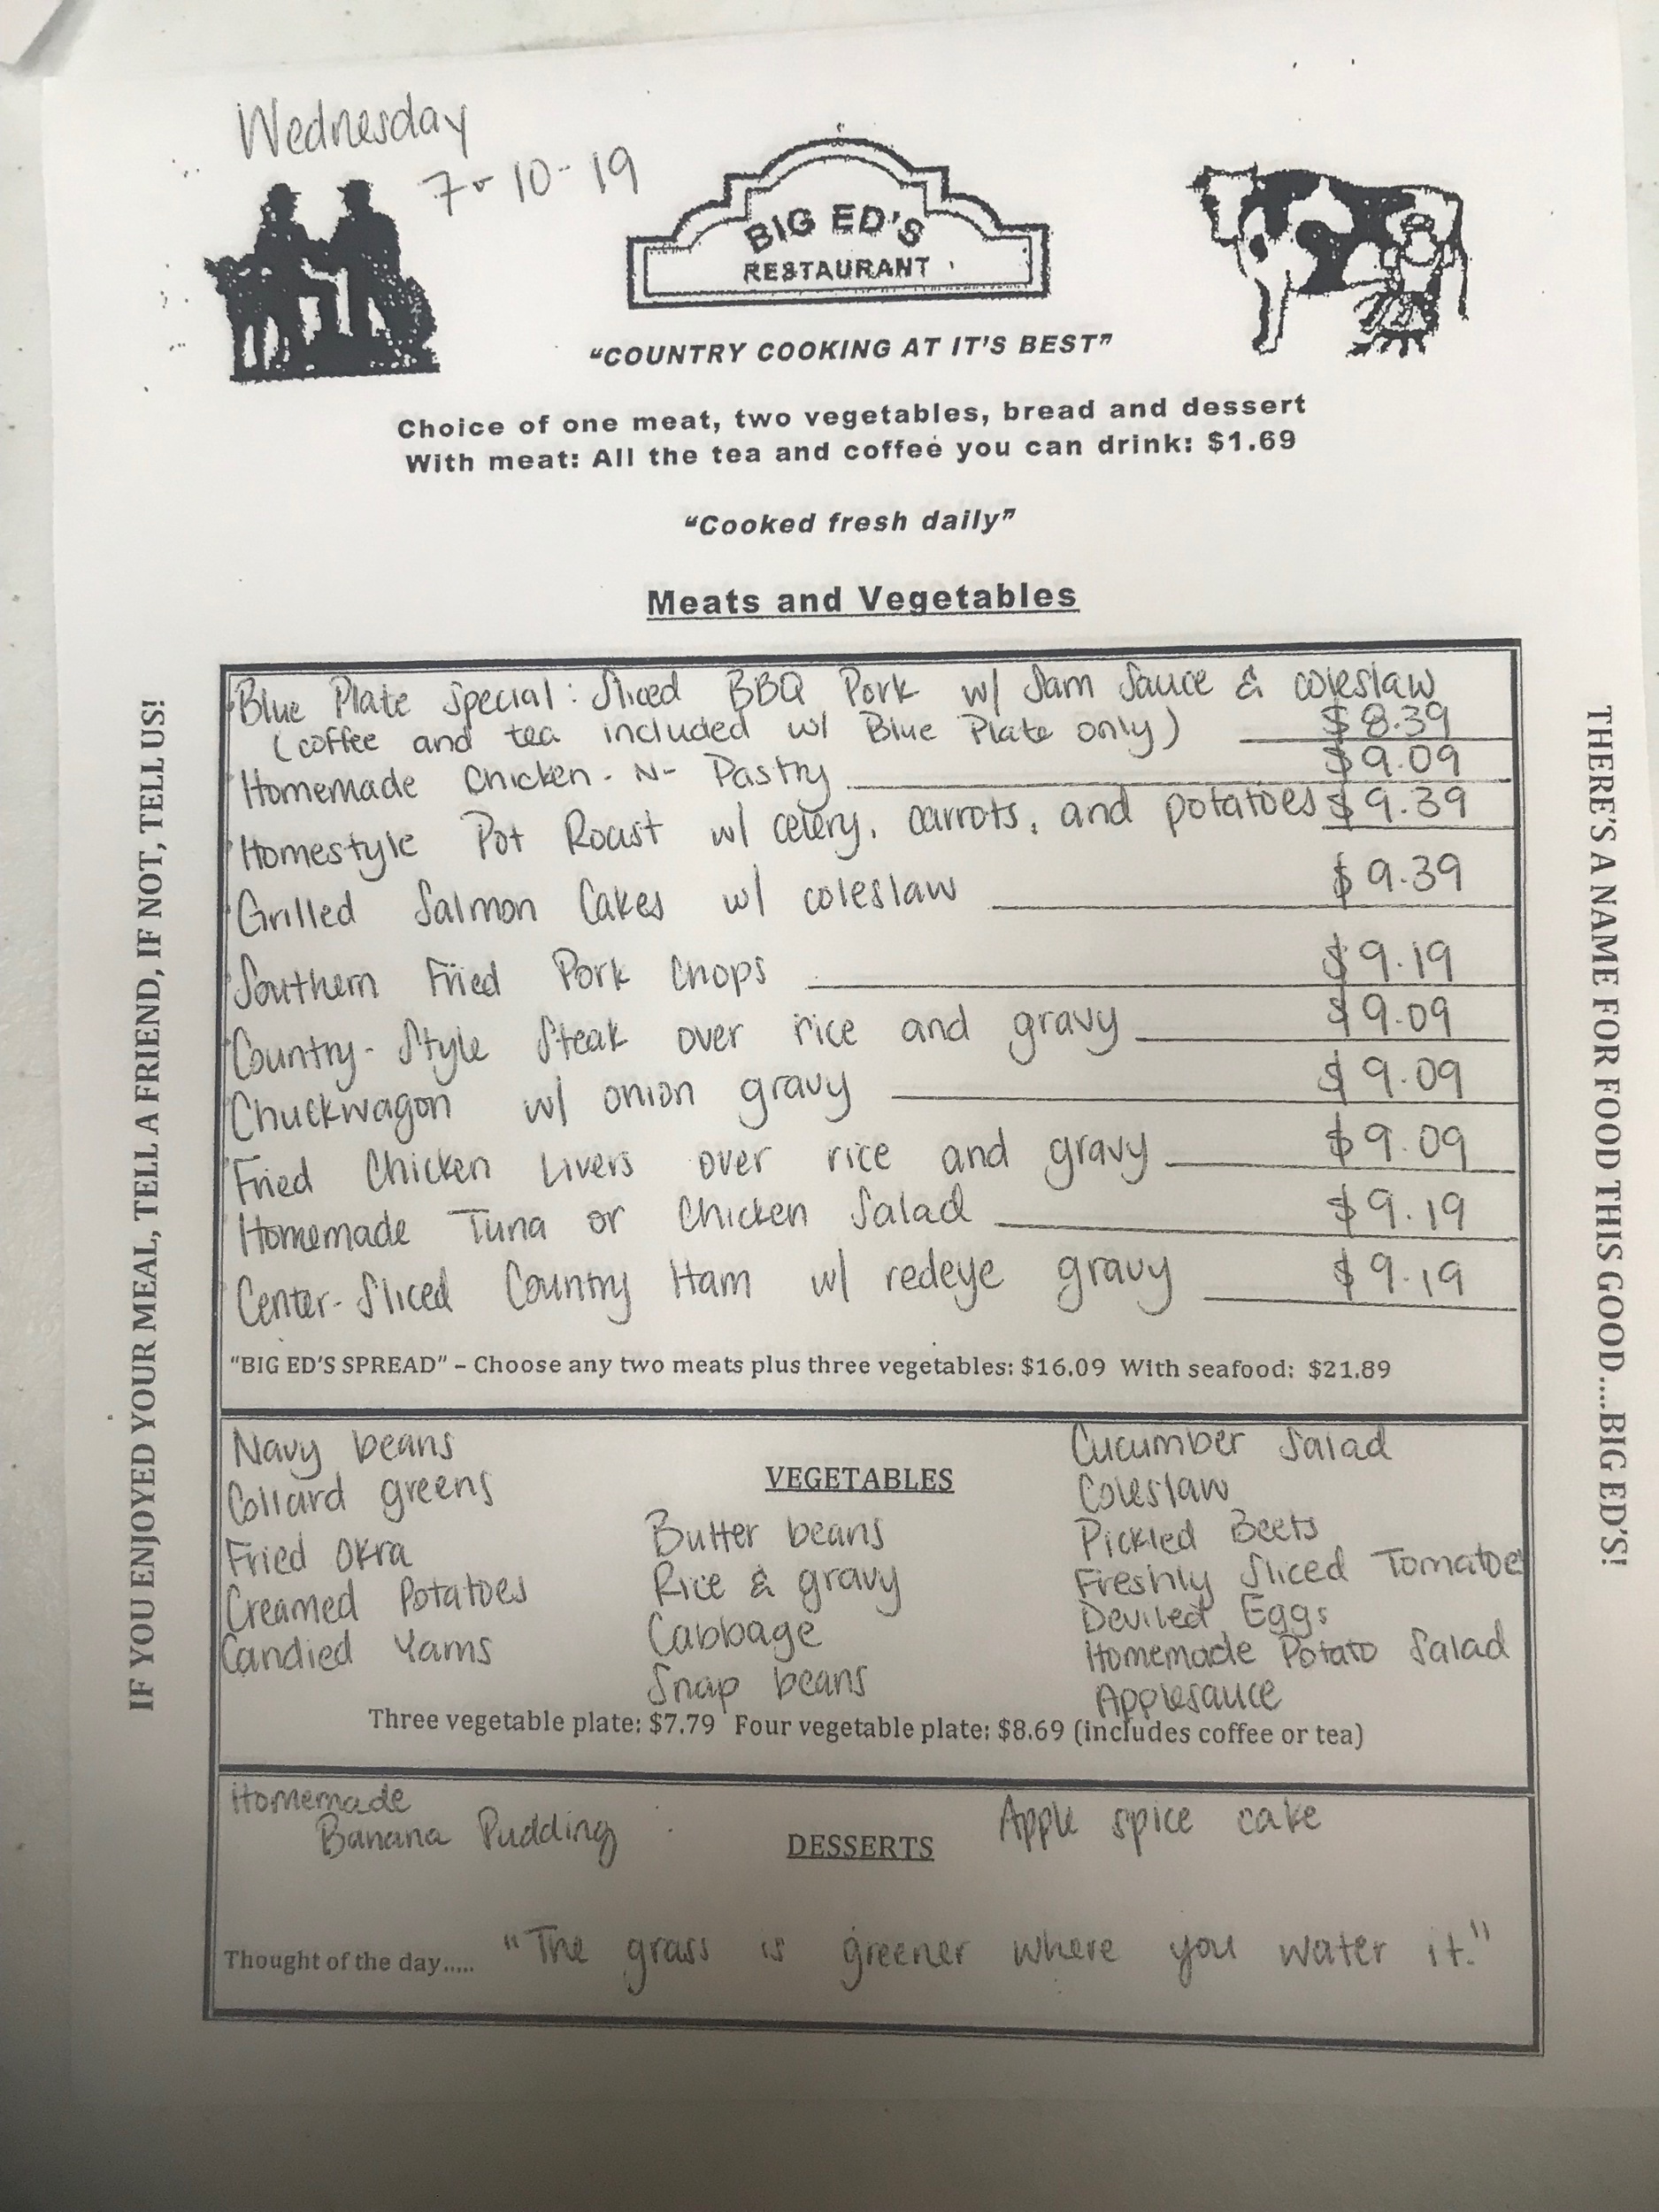 Wednesday
7-10-19
BIG ED'S
RESTAURANT
"COUNTRY COOKING AT IT'S BEST"
Choice of one meat, two vegetables, bread and dessert
With meat: All the tea and coffee you can drink: $1.69
"Cooked fresh daily"
Meats and Vegetables
Blue Plate Special: Sliced BBQ Pork w/ Sam Sauce & coleslaw
(coffee and tea included w/ Blue Plate only) $8.39
Homemade Chicken-N-Pastry $9.09
Homestyle Pot Roast w/ celery, carrots, and potatoes $9.39
Grilled Salmon Cakes w/ coleslaw $9.39
Southern Fried Pork Chops $9.19
Country-Style Steak over rice and gravy $9.09
Chuckwagon w/ onion gravy $9.09
Fried Chicken Livers over rice and gravy $9.09
Homemade Tuna or Chicken Salad $9.19
Center-Sliced Country Ham w/ redeye gravy $9.19
"BIG ED'S SPREAD" – Choose any two meats plus three vegetables: $16.09 With seafood: $21.89
VEGETABLES
Navy beans
Collard greens
Fried Okra
Creamed Potatoes
Candied Yams
Butter beans
Rice & gravy
Cabbage
Snap beans
Cucumber Salad
Coleslaw
Pickled Beets
Freshly Sliced Tomatoes
Deviled Eggs
Homemade Potato Salad
Applesauce
Three vegetable plate: $7.79 Four vegetable plate: $8.69 (includes coffee or tea)
DESSERTS
Homemade
Banana Pudding
Apple spice cake
Thought of the day..... "The grass is greener where you water it."
IF YOU ENJOYED YOUR MEAL, TELL A FRIEND, IF NOT, TELL US!
THERE'S A NAME FOR FOOD THIS GOOD....BIG ED'S!